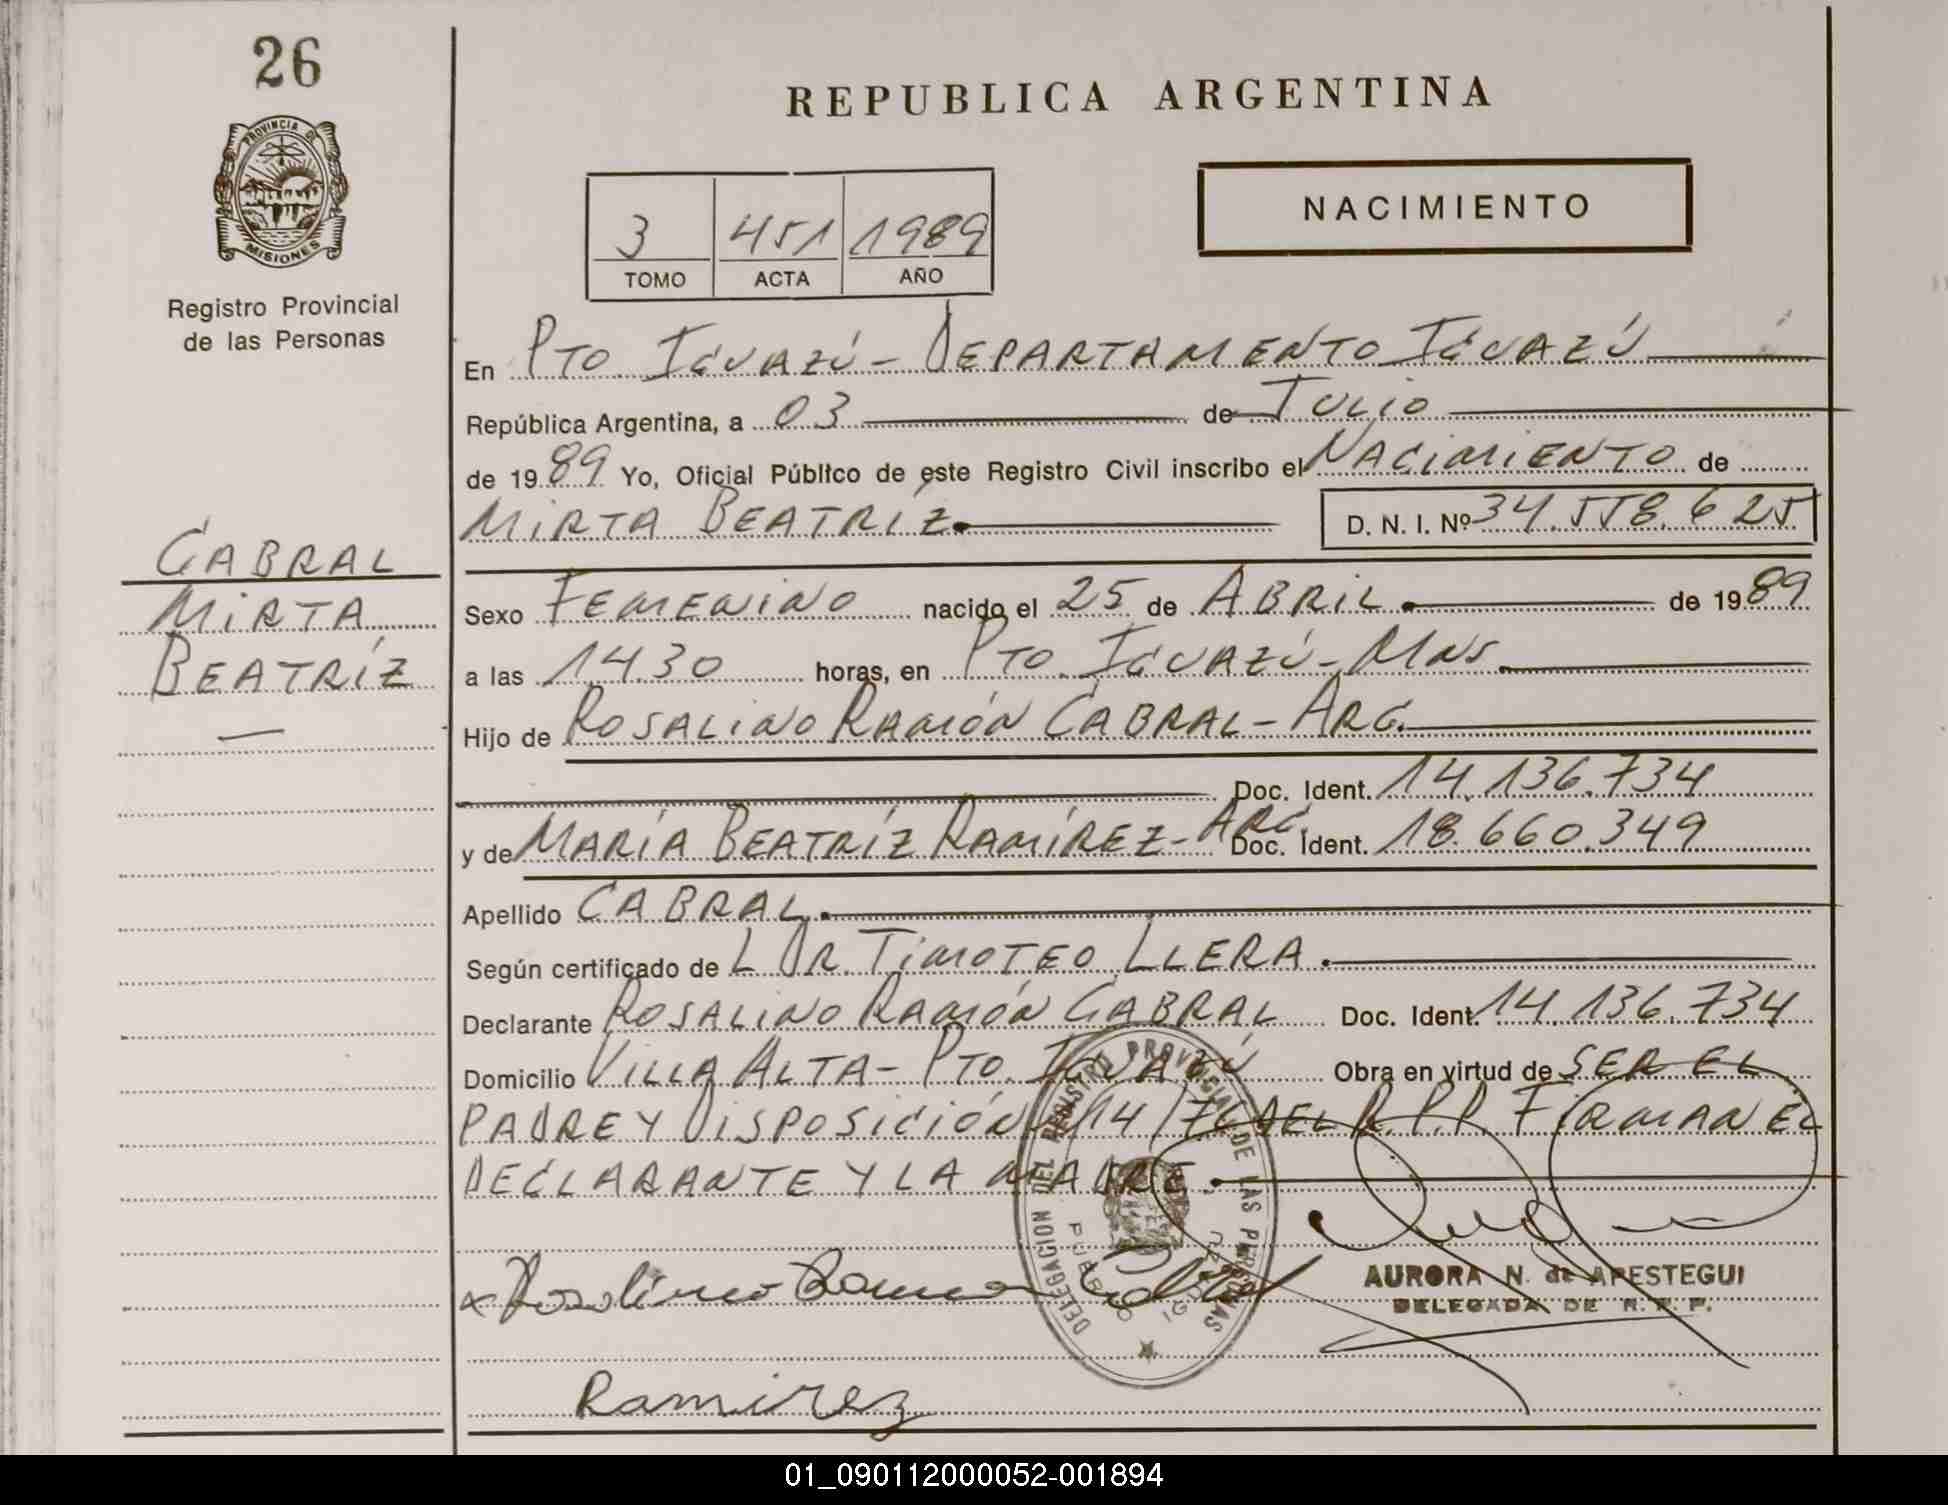 26
PROVINCIA DE
MISIONES
Registro Provincial
de las Personas
CABRAL
MIRTA
BEATRÍZ
REPUBLICA ARGENTINA
NACIMIENTO
3 451 1989
TOMO ACTA AÑO
En PTO. IGUAZÚ - DEPARTAMENTO IGUAZÚ
República Argentina, a 03 de JULIO
de 1989 Yo, Oficial Público de este Registro Civil inscribo el NACIMIENTO de
MIRTA BEATRIZ. D. N. I. Nº 34.558.625
Sexo FEMENINO nacido el 25 de ABRIL. de 1989
a las 14.30 horas, en PTO. IGUAZÚ - MNS.
Hijo de ROSALINO RAMÓN CABRAL - ARG.
Doc. Ident. 14.136.734
y de MARÍA BEATRÍZ RAMÍREZ - ARG. Doc. Ident. 18.660.349
Apellido CABRAL.
Según certificado de L DR. TIMOTEO LLERA.
Declarante ROSALINO RAMÓN CABRAL Doc. Ident. 14.136.734
Domicilio VILLA ALTA - PTO. IGUAZÚ Obra en virtud de SER EL
PADRE Y DISPOSICIÓN 14/76 DEL R.P.P. FIRMAN EL
DECLARANTE Y LA MADRE.
DELEGACION DEL REGISTRO PROVINCIAL DE LAS PERSONAS
x Rosalino Ramon
AURORA N. de ARESTEGUI
DELEGADA DE R. P. P.
Ramirez
01_090112000052-001894